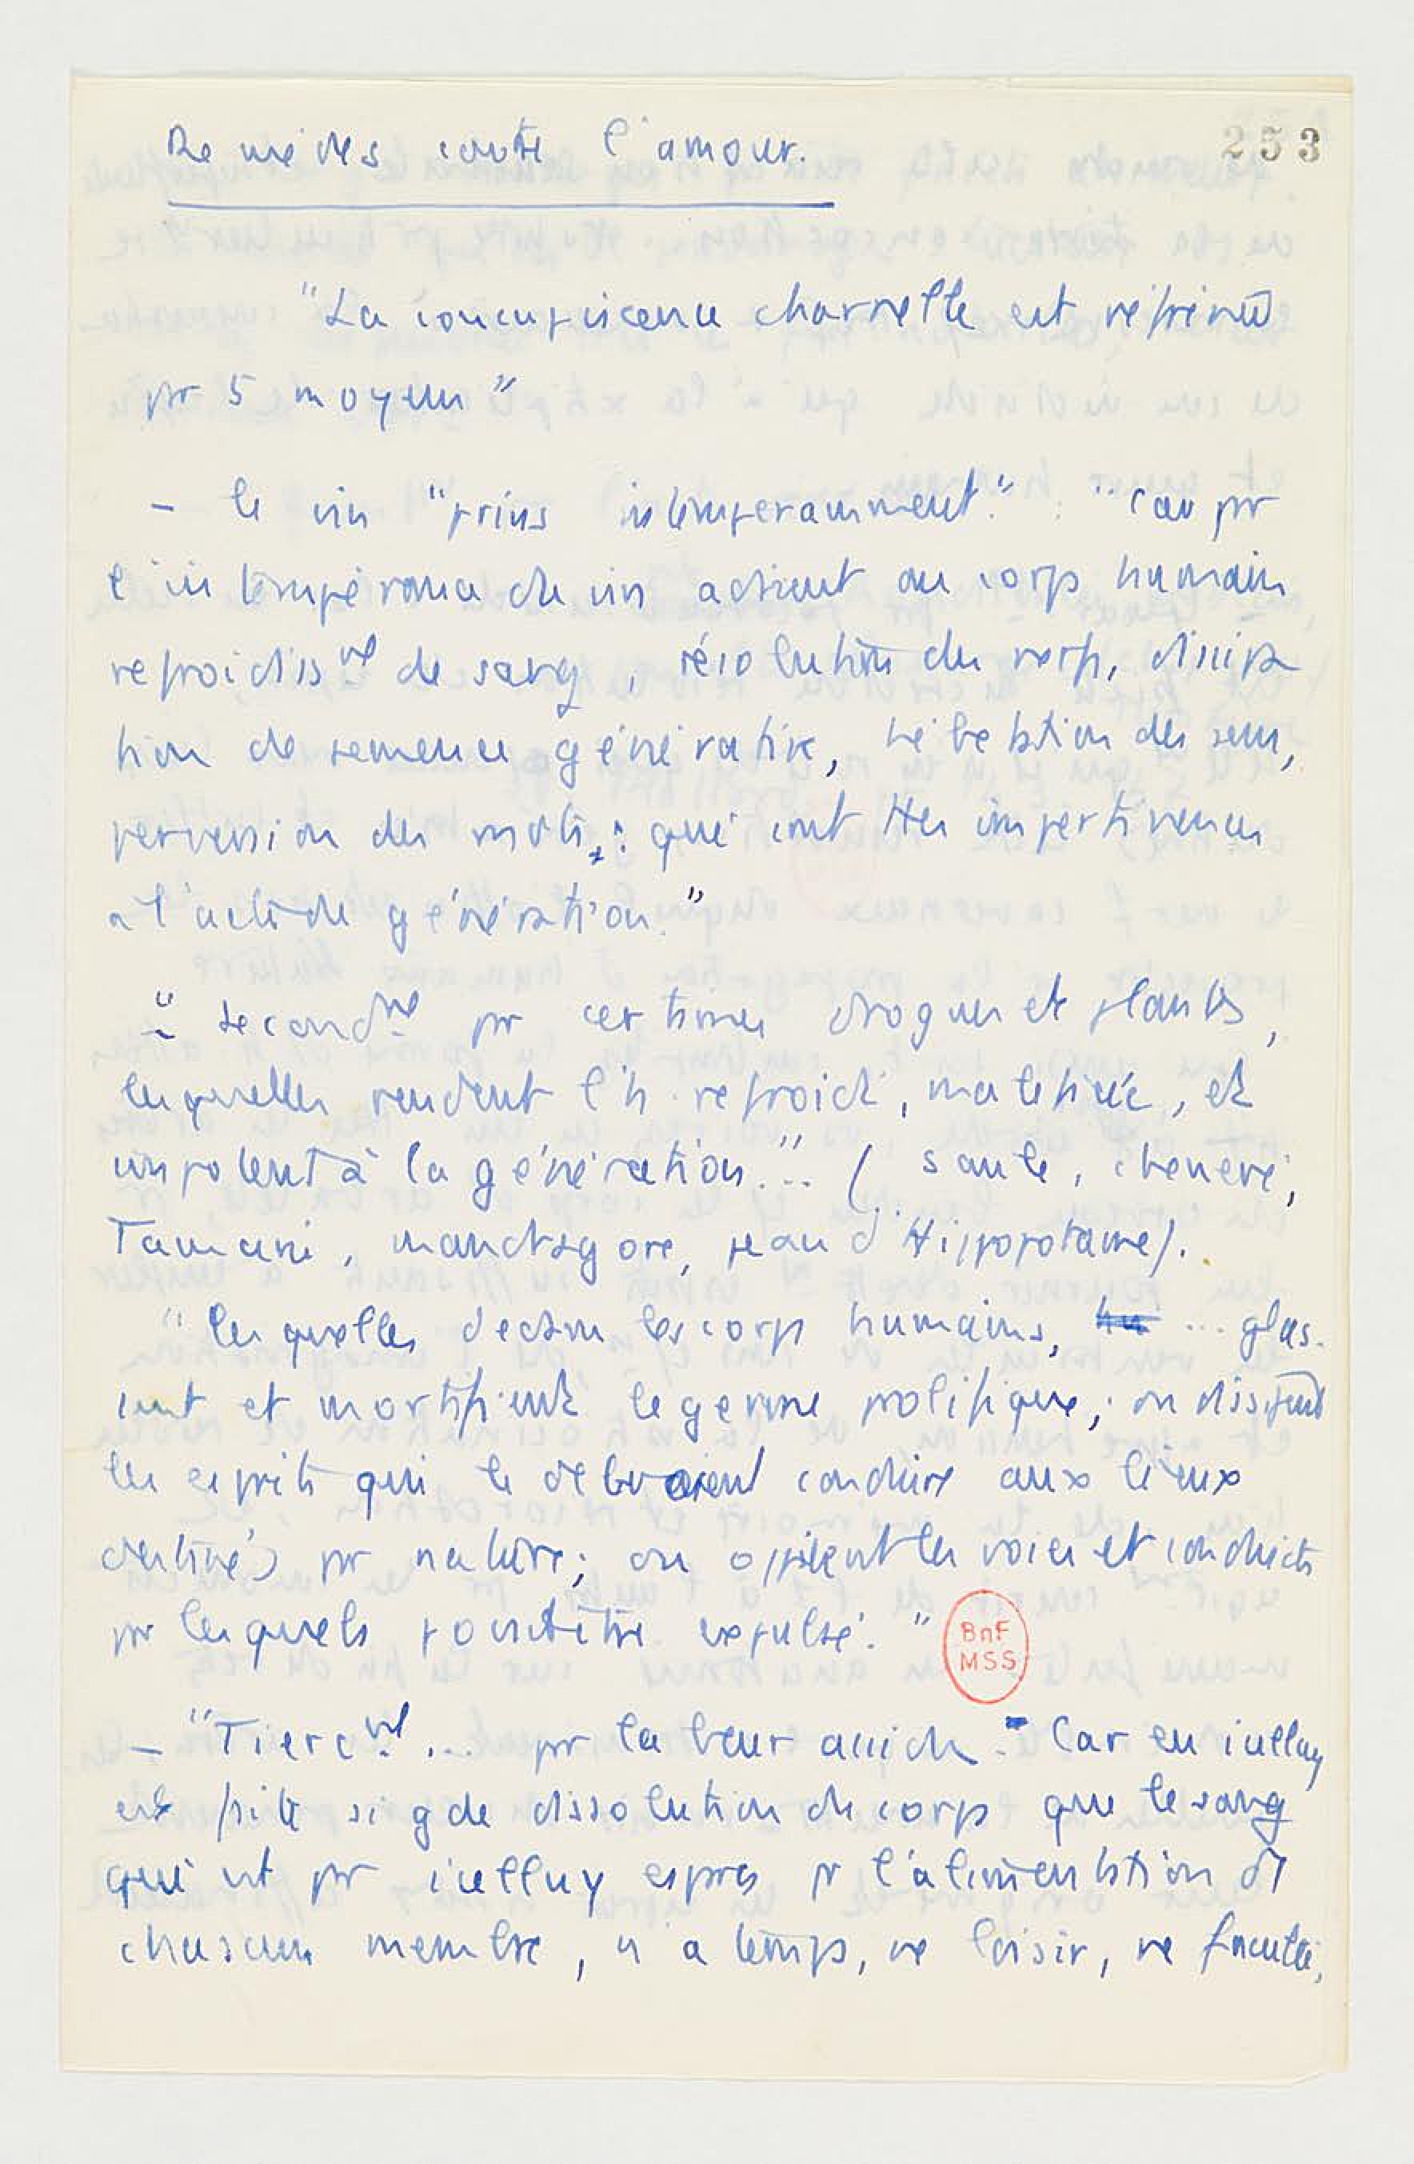 253
Remèdes contre l'amour.
"La concupiscence charnelle est réfrénée
pr 5 moyens"
- le vin "prins intemperamment." : "car pr
l'intempérance du vin advient au corps humain
refroidissnt de sang, résolution du nerfs, dissipa
tion de semence générative, hébétation des sens,
perversion des mvts : qui sont ttes impertinences
a l'acte de génération."
"- secondnt pr certaines drogues et plantes,
lesquelles rendent l'h. refroidi, maléficié, et
impotent à la génération..." (saule, cheneve,
Tamaris, mandragore, peau d'Hippopotame).
"lesquelles dedans les corps humains, ... glas-
sent et mortifient le germe prolifique; ou dissipent
les esprits qui le debvoient conduire aux lieux
destinés pr nature; ou oppilent les voies et conduicts
pr lesquels pouvait être expulsé."
BnF
MSS
- "Tiercnt ... pr labeur assidu. Car en icelluy
est faite si gde dissolution du corps que le sang
qui est pr icelluy espars pr l'alimentation de
chascun membre, n'a temps, ne loisir, ne faculté,